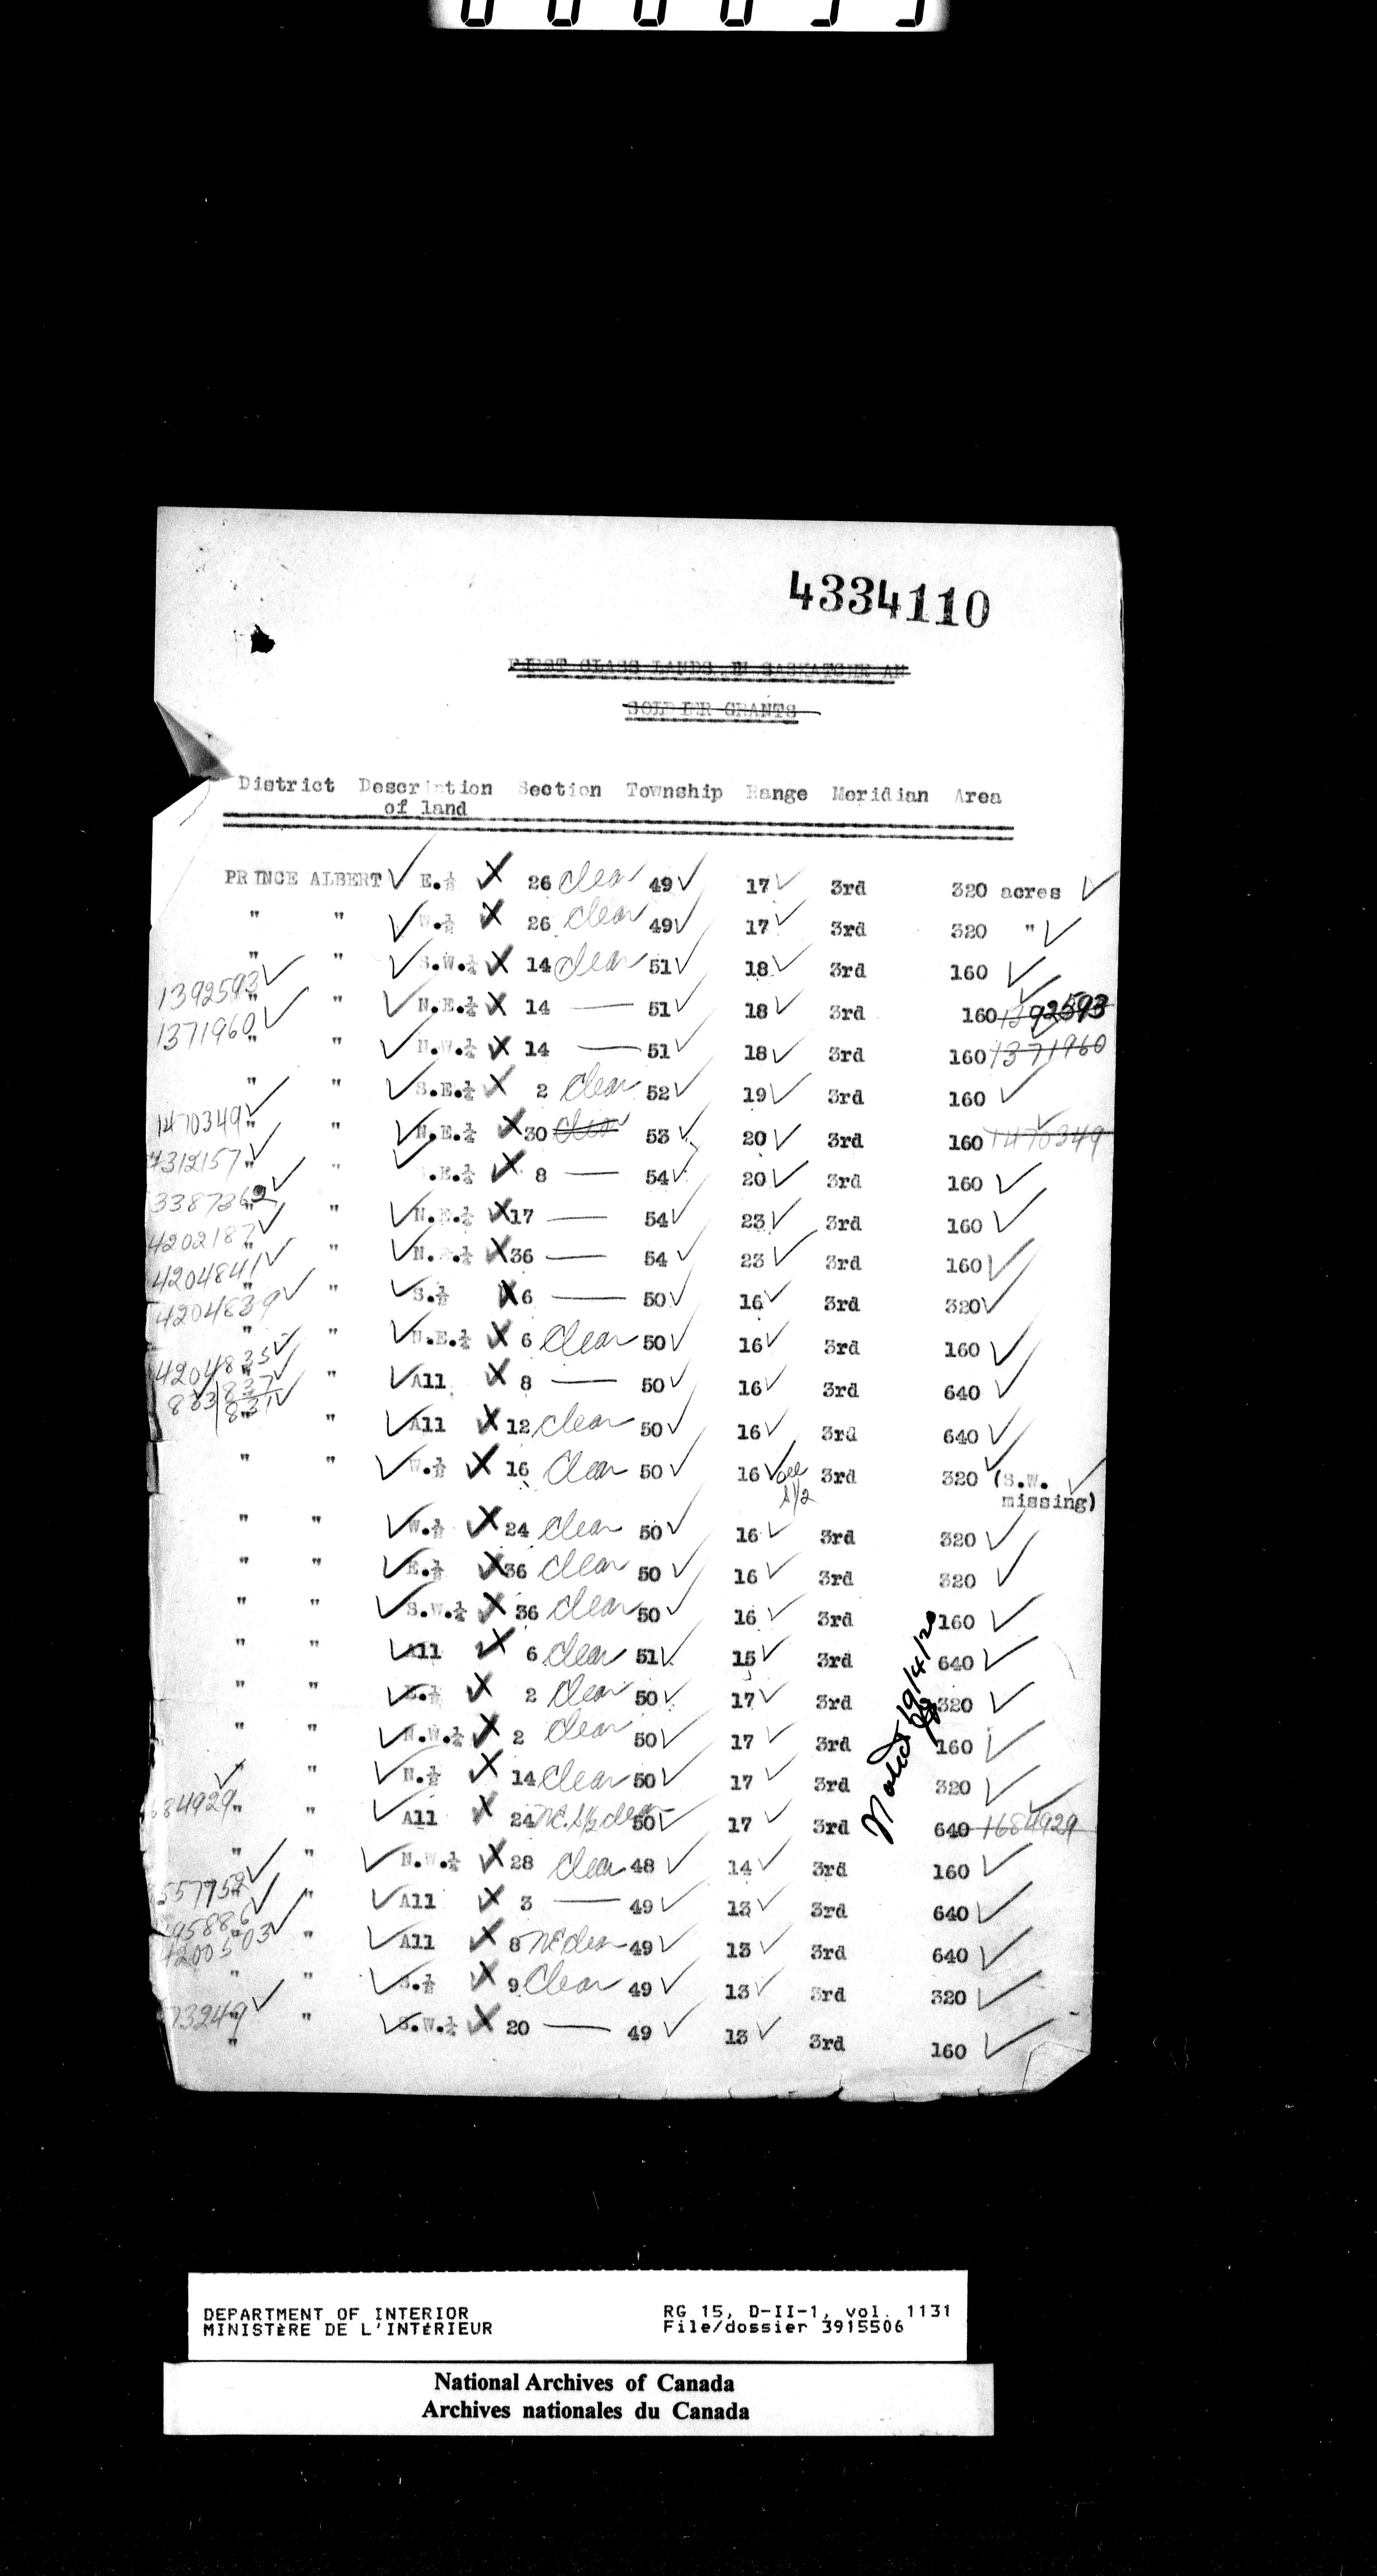 4334110
FIRST CLASS LANDS IN SASKATCHEWAN
SOLDIER GRANTS
District Description of land Section Township Range Meridian Area
PRINCE ALBERT ✓ E.½ X 26 clear 49 ✓ 17 ✓ 3rd 320 acres ✓
" " ✓ W.½ X 26 clear 49 ✓ 17 ✓ 3rd 320 " ✓
" " ✓ S.W.¼ X 14 clear 51 ✓ 18 ✓ 3rd 160 ✓
1392593 ✓ " " ✓ N.E.¼ X 14 — 51 ✓ 18 ✓ 3rd 160 1392593
1371960 ✓ " " ✓ N.W.¼ X 14 — 51 ✓ 18 ✓ 3rd 160 1371960
" " ✓ S.E.¼ X 2 clear 52 ✓ 19 ✓ 3rd 160 ✓
1470349 ✓ " " ✓ N.E.¼ X 30 clear 53 ✓ 20 ✓ 3rd 160 1470349
4312157 ✓ " " ✓ .E.¼ X 8 — 54 ✓ 20 ✓ 3rd 160 ✓
3387362 ✓ " " ✓ N.E.¼ X 17 — 54 ✓ 23 ✓ 3rd 160 ✓
4202187 ✓ " " ✓ N. .¼ X 36 — 54 ✓ 23 ✓ 3rd 160 ✓
4204841 ✓ " " ✓ S.½ X 6 — 50 ✓ 16 ✓ 3rd 320 ✓
4204839 ✓ " " ✓ N.E.¼ X 6 clear 50 ✓ 16 ✓ 3rd 160 ✓
4204835 ✓ " " ✓ All X 8 — 50 ✓ 16 ✓ 3rd 640 ✓
833 ✓ 837 ✓
831 ✓ " " ✓ All X 12 clear 50 ✓ 16 ✓ 3rd 640 ✓
" " ✓ W.½ X 16 clear 50 ✓ 16 ✓ see S1/2 3rd 320 (S.W. ✓
missing)
" " ✓ W.½ X 24 clear 50 ✓ 16 ✓ 3rd 320 ✓
" " ✓ E.½ X 36 clear 50 ✓ 16 ✓ 3rd 320 ✓
" " ✓ S.W.¼ X 36 clear 50 ✓ 16 ✓ 3rd 160 ✓
" " ✓ All X 6 clear 51 ✓ 15 ✓ 3rd 640 ✓
" " ✓ .½ X 2 clear 50 ✓ 17 ✓ 3rd 320 ✓
" " ✓ N.W.¼ X 2 clear 50 ✓ 17 ✓ 3rd 160 ✓
" " ✓ N.½ X 14 clear 50 ✓ 17 ✓ 3rd 320 ✓
84929 ✓ " " ✓ All X 24 NE. S1/2 clear 50 ✓ 17 ✓ 3rd 640 1684929
" " ✓ N.W.¼ X 28 clear 48 ✓ 14 ✓ 3rd 160 ✓
557752 ✓ " " ✓ All X 3 — 49 ✓ 13 ✓ 3rd 640 ✓
95886 ✓ " " ✓ All X 8 NE clear 49 ✓ 13 ✓ 3rd 640 ✓
4200503 ✓
" " ✓ S.½ X 9 clear 49 ✓ 13 ✓ 3rd 320 ✓
73249 ✓ " " ✓ S.W.¼ X 20 — 49 ✓ 13 ✓ 3rd 160 ✓
"
Noted 19/4/20
DEPARTMENT OF INTERIOR
MINISTÈRE DE L'INTÉRIEUR
RG 15, D-II-1, vol. 1131
File/dossier 3915506
National Archives of Canada
Archives nationales du Canada